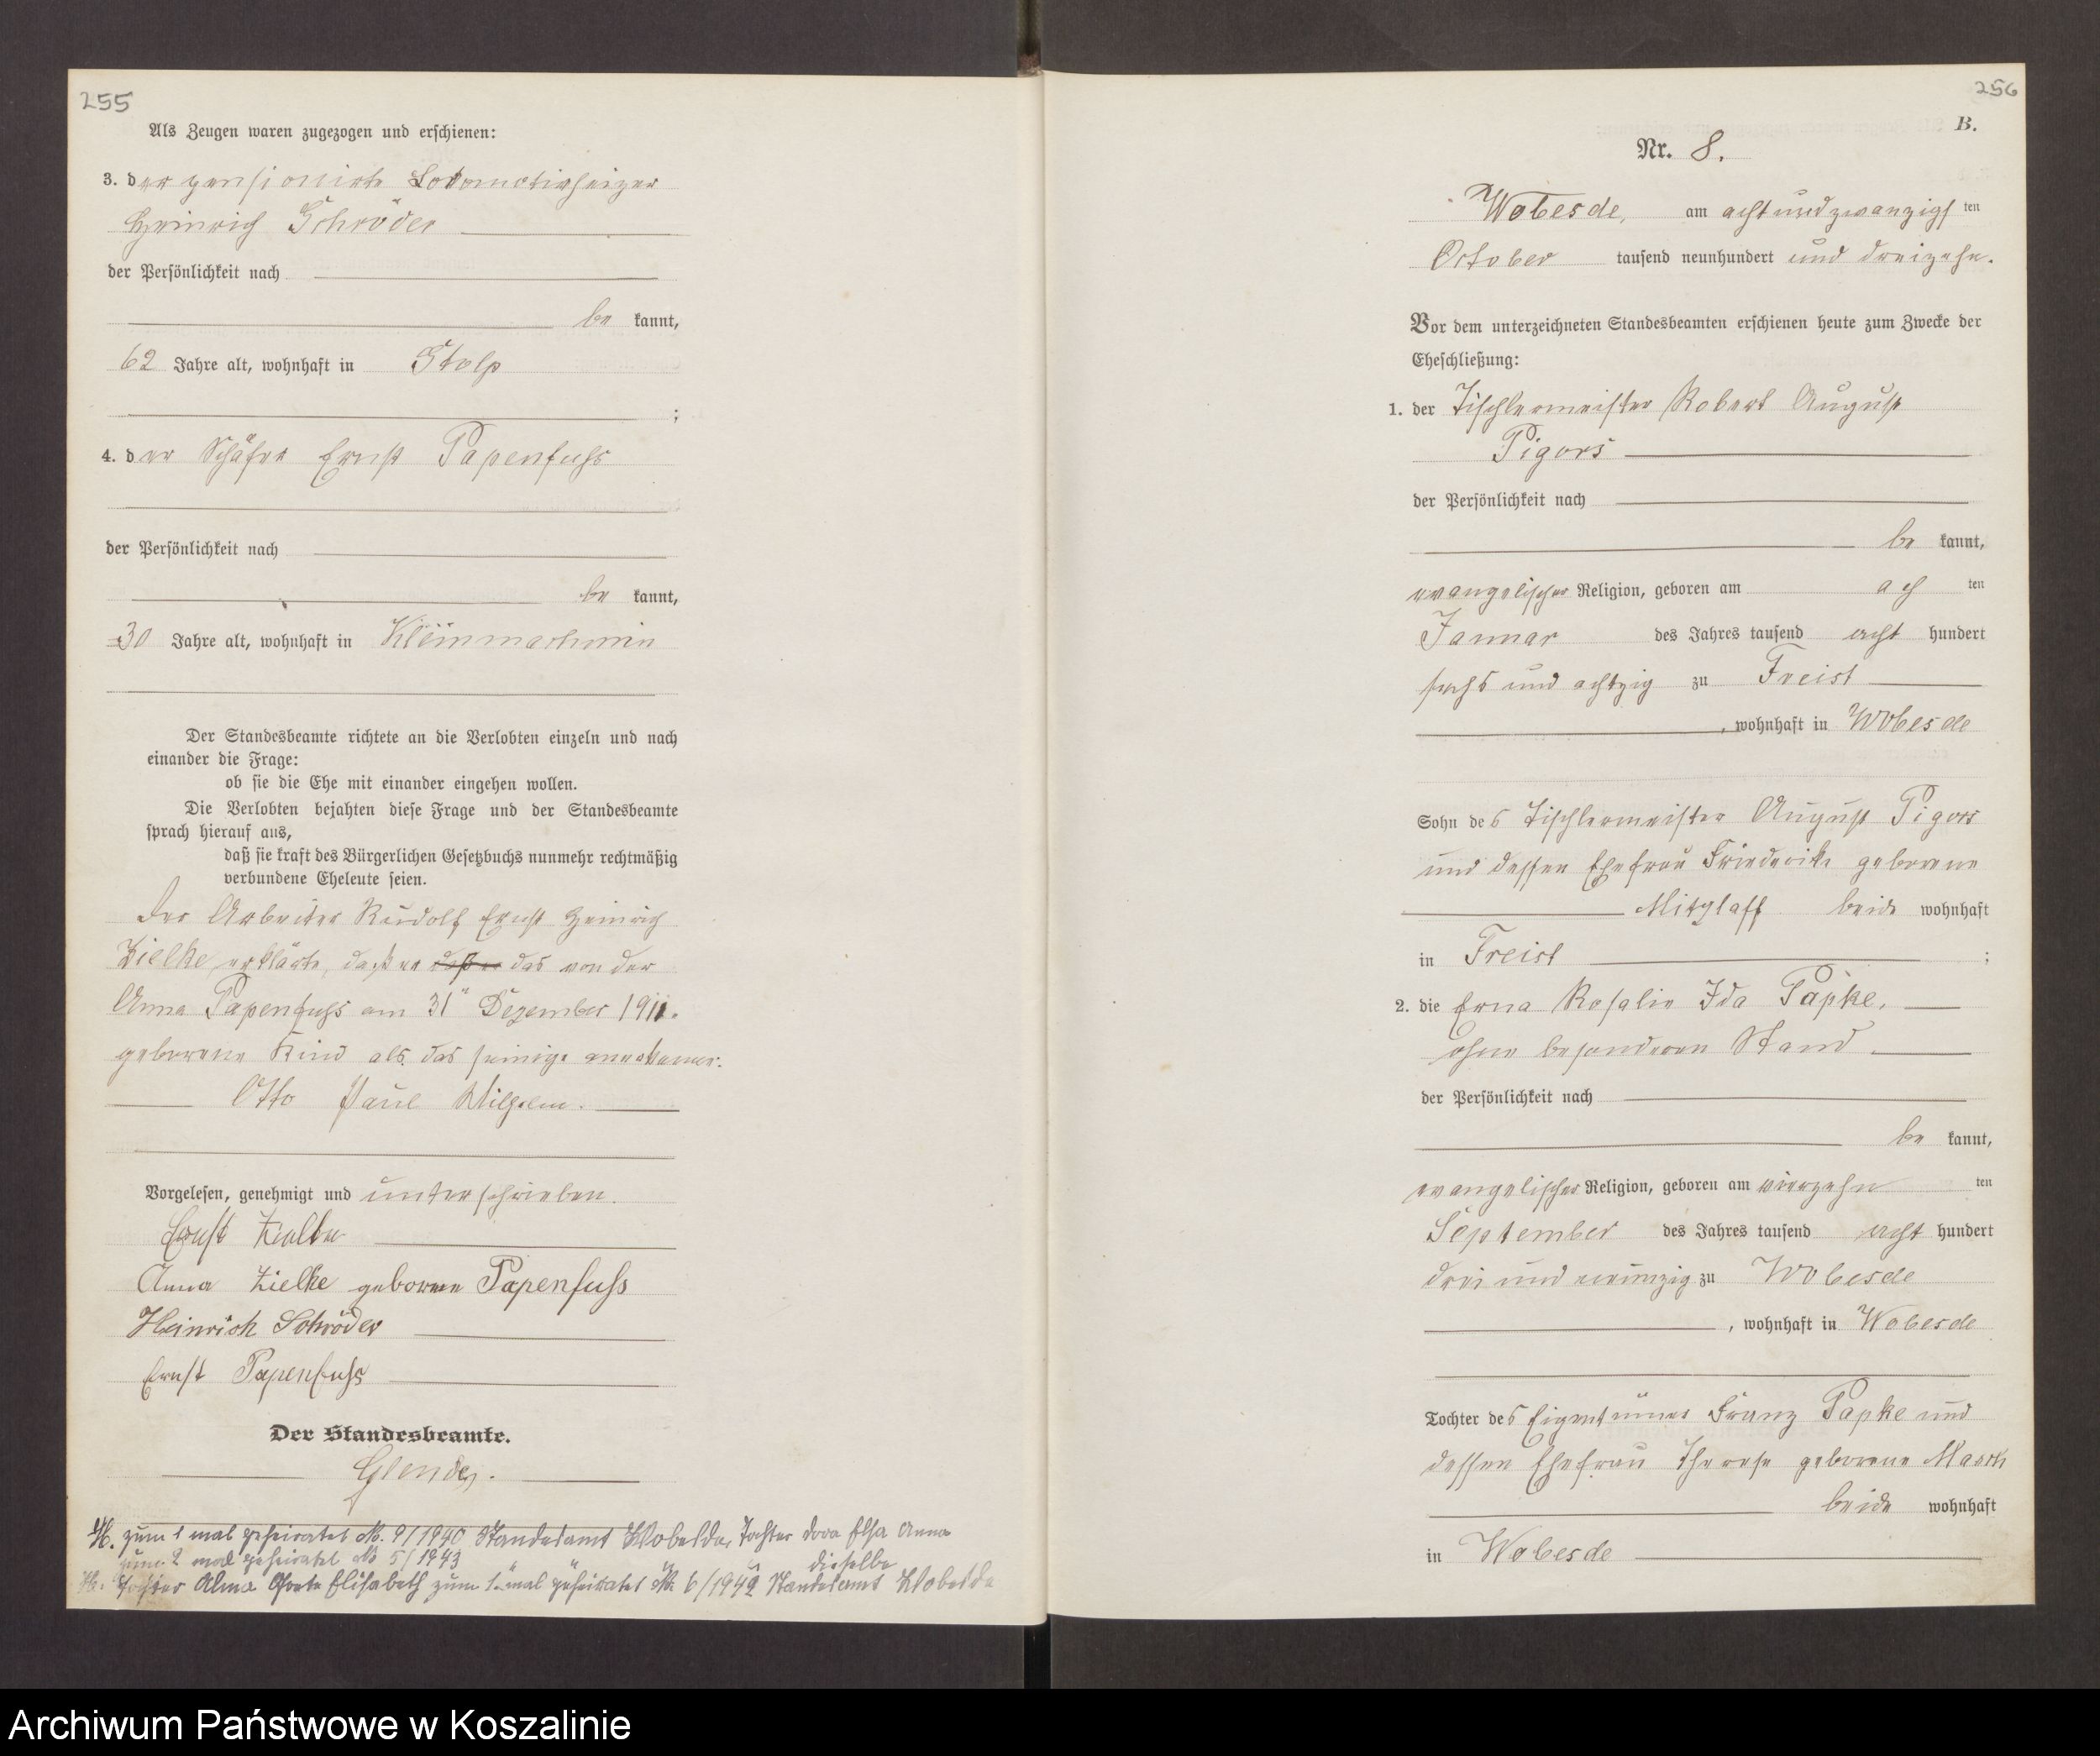 255
Als Zeugen waren zugezogen und erschienen:
3. der pensionirte Lokomotivheizer
Heinrich Schröder
der Persönlichkeit nach
be kannt,
62 Jahre alt, wohnhaft in Stolp
;
4. der Schäfer Ernst Papenfuhs
der Persönlichkeit nach
be kannt,
30 Jahre alt, wohnhaft in Klein machmin
Der Standesbeamte richtete an die Verlobten einzeln und nach
einander die Frage:
ob sie die Ehe mit einander eingehen wollen.
Die Verlobten bejahten diese Frage und der Standesbeamte
sprach hierauf aus,
daß sie kraft des Bürgerlichen Gesetzbuchs nunmehr rechtmäßig
verbundene Eheleute seien.
Der Arbeiter Rudolf Ernst Heinrich
Zielke erklärte, daß er daß er das von der
Anna Papenfuhs am 31" Dezember 1911.
geborene Kind als das seinige anerkenne.
Otto Paul Wilhelm.
Vorgelesen, genehmigt und unterschrieben.
Ernst Zielke
Anna Zielke geborene Papenfuhs
Heinrich Schröder
Ernst Papenfuhs
Der Standesbeamte.
H. zum 1 mal geheiratet No. 9/1940 Standesamt Wobesde, Tochter Dora Elsa Anna
zum 2 mal geheiratet No 5/1943 dieselbe
H. Tochter Alma Grete Elisabeth zum 1. mal geheiratet No. 6/1942 Standesamt Wobesde
256
B.
Nr. 8.
Wobesde, am achtundzwanzigsten
October tausend neunhundert und dreizehn.
Vor dem unterzeichneten Standesbeamten erschienen heute zum Zwecke der
Eheschließung:
1. der Tischlermeister Robert August
Pigors
der Persönlichkeit nach
be kannt,
evangelischer Religion, geboren am ach ten
Januar des Jahres tausend acht hundert
sechs und achtzig zu Freist
, wohnhaft in Wobesde
Sohn des Tischlermeister August Pigors
und dessen Ehefrau Friederike geborene
Mitzlaff beide wohnhaft
in Freist ;
2. die Erna Rosalie Ida Papke,
ohne besonderen Stand
der Persönlichkeit nach
be kannt,
evangelischer Religion, geboren am vierzehn ten
September des Jahres tausend acht hundert
drei und neunzig zu Wobesde
, wohnhaft in Wobesde
Tochter des Eigentümer Franz Papke und
dessen Ehefrau Therese geborene Masch
beide wohnhaft
in Wobesde
Archiwum Państwowe w Koszalinie